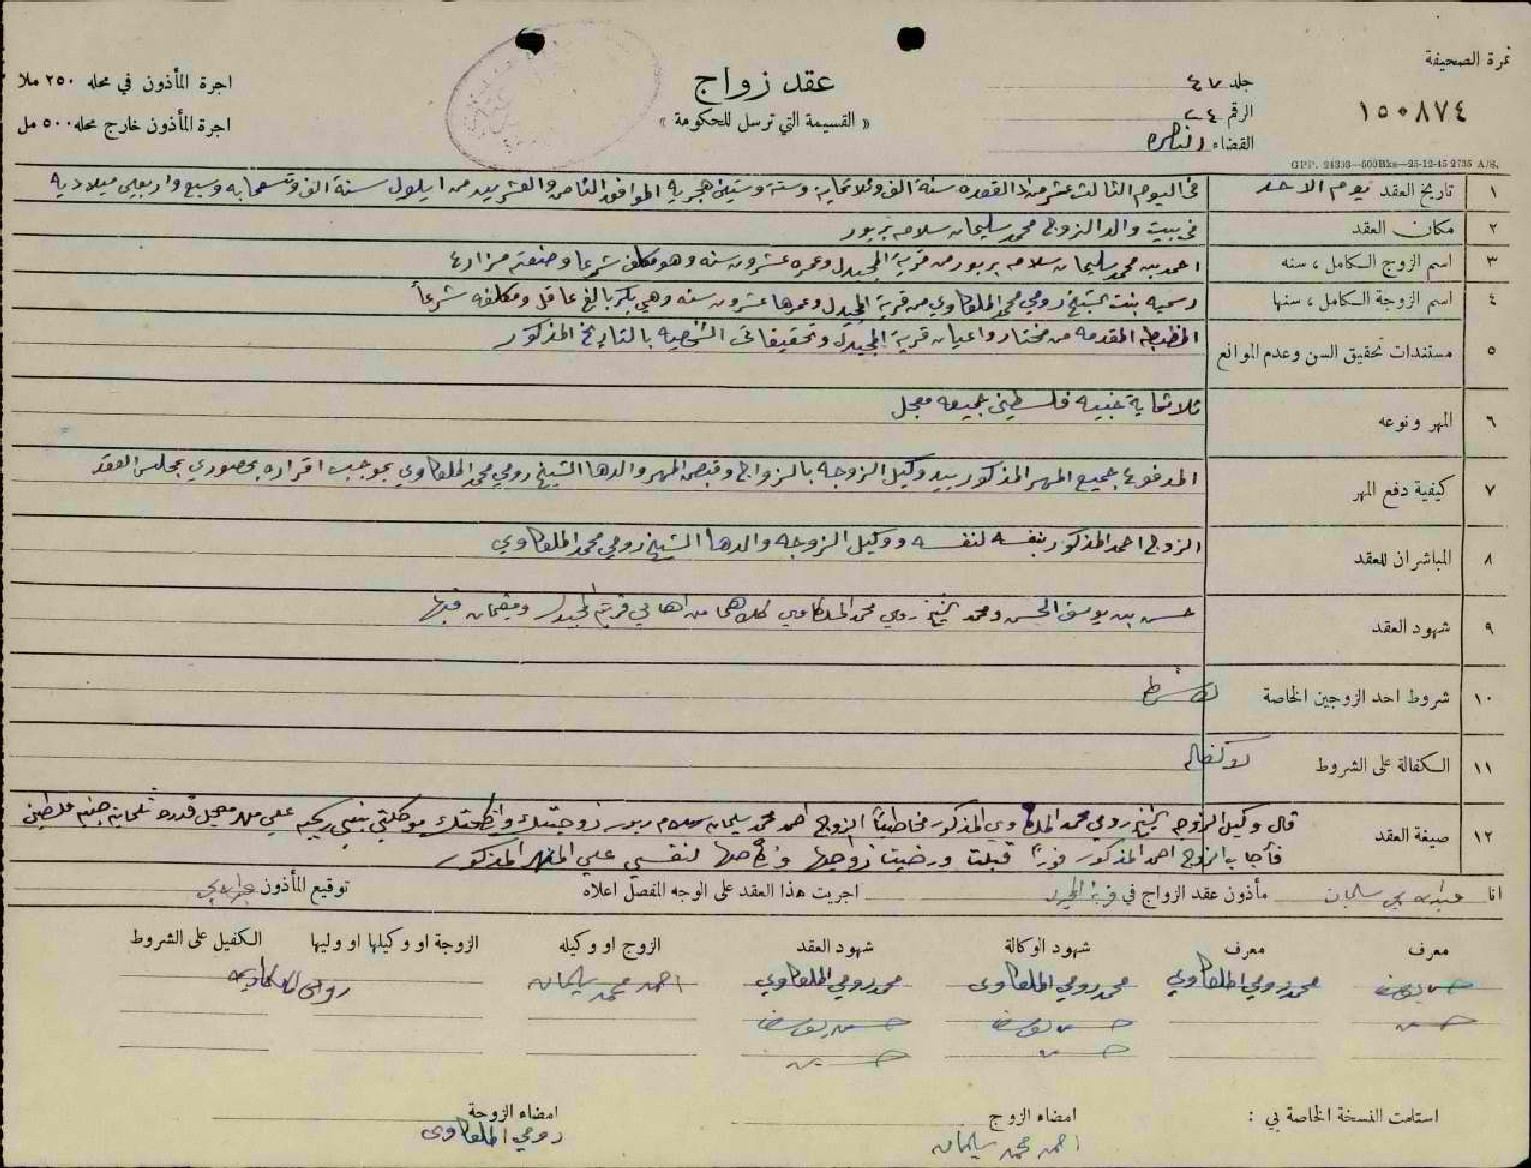 نمرة الصحيفة
١٥٠٨٧٤
جلد
الرقم
القضاء الناصره
عقد زواج
« القسيمة التي ترسل للحكومة »
اجرة المأذون في محله ٢٥٠ ملا
اجرة المأذون خارج محله ٥٠٠ مل
GPP. 24393—500Bks—25-12-45 2735 A/S.
١ تاريخ العقد يوم الاحد في اليوم الثالث عشر من ذا القعده سنة الف وثلاثماية وستة وستين هجريه الموافق الثامن والعشرين من ايلول سنة الف وتسعمايه وسبع واربعين ميلاديه
٢ مكان العقد في بيت والد الزوج محمد سليمان سلامه بربور
٣ اسم الزوج الكامل ، سنه احمد بن محمد سليمان سلامه بربور من قرية المجيدل وعمره عشرون سنه وهو مكلف شرعا وصنعته مزارع
٤ اسم الزوجة الكامل ، سنها رسميه بنت الشيخ رومي محمد الملفكاوي من قرية المجيدل وعمرها عشرون سنه وهي بكر بالغ عاقل ومكلفه شرعاً
٥ مستندات تحقيق السن وعدم الموانع المظبطه المقدمه من مختار واعيان قرية المجيدل وتحقيقاتى الشخصيه بالتاريخ المذكور
٦ المهر ونوعه ثلاثماية جنيه فلسطيني جميعه معجل
٧ كيفية دفع المهر المدفوع جميع المهر المذكور بيد وكيل الزوجه بالزواج وقبض المهر والدها الشيخ رومي محمد الملفكاوي بموجب اقراره بحضوري بمجلس العقد
٨ المباشران للعقد الزوج احمد المذكور بنفسه لنفسه ووكيل الزوجه والدها الشيخ رومي محمد الملفكاوي
٩ شهود العقد حسن بن يوسف الحسن ومحمد الشيخ رومي محمد الملفكاوي كلاهما من اهالي قرية المجيدل ومقيمان فيها
١٠ شروط احد الزوجين الخاصة لا شرط
١١ الكفالة على الشروط لا كفاله
١٢ صيغة العقد قال وكيل الزوجه الشيخ رومي محمد الملفكاوي المذكور مخاطباً الزوج احمد محمد سليمان سلامه بربور زوجتك وانكحتك موكلتي بنتي رسميه على مهر معجل قدره ثلثماية جنيه فلسطيني
فأجاب الزوج احمد المذكور فوراً قبلت ورضيت زواجها ونكاحها لنفسي على المهر المذكور
انا سليمان مأذون عقد الزواج في قرية المجيدل اجريت هذا العقد على الوجه المفصل اعلاه توقيع المأذون
معرف معرف شهود الوكالة شهود العقد الزوج او وكيله الزوجة او وكيلها او وليها الكفيل على الشروط
حسن يوسف محمد رومي الملفكاوي محمد رومي الملفكاوي محمد رومي الملفكاوي احمد محمد سليمان رومي الملفكاوي
حسن حسن يوسف حسن يوسف
حسن حسن
استلمت النسخة الخاصة بي : امضاء الزوج امضاء الزوجة
احمد محمد سليمان رومي الملفكاوي